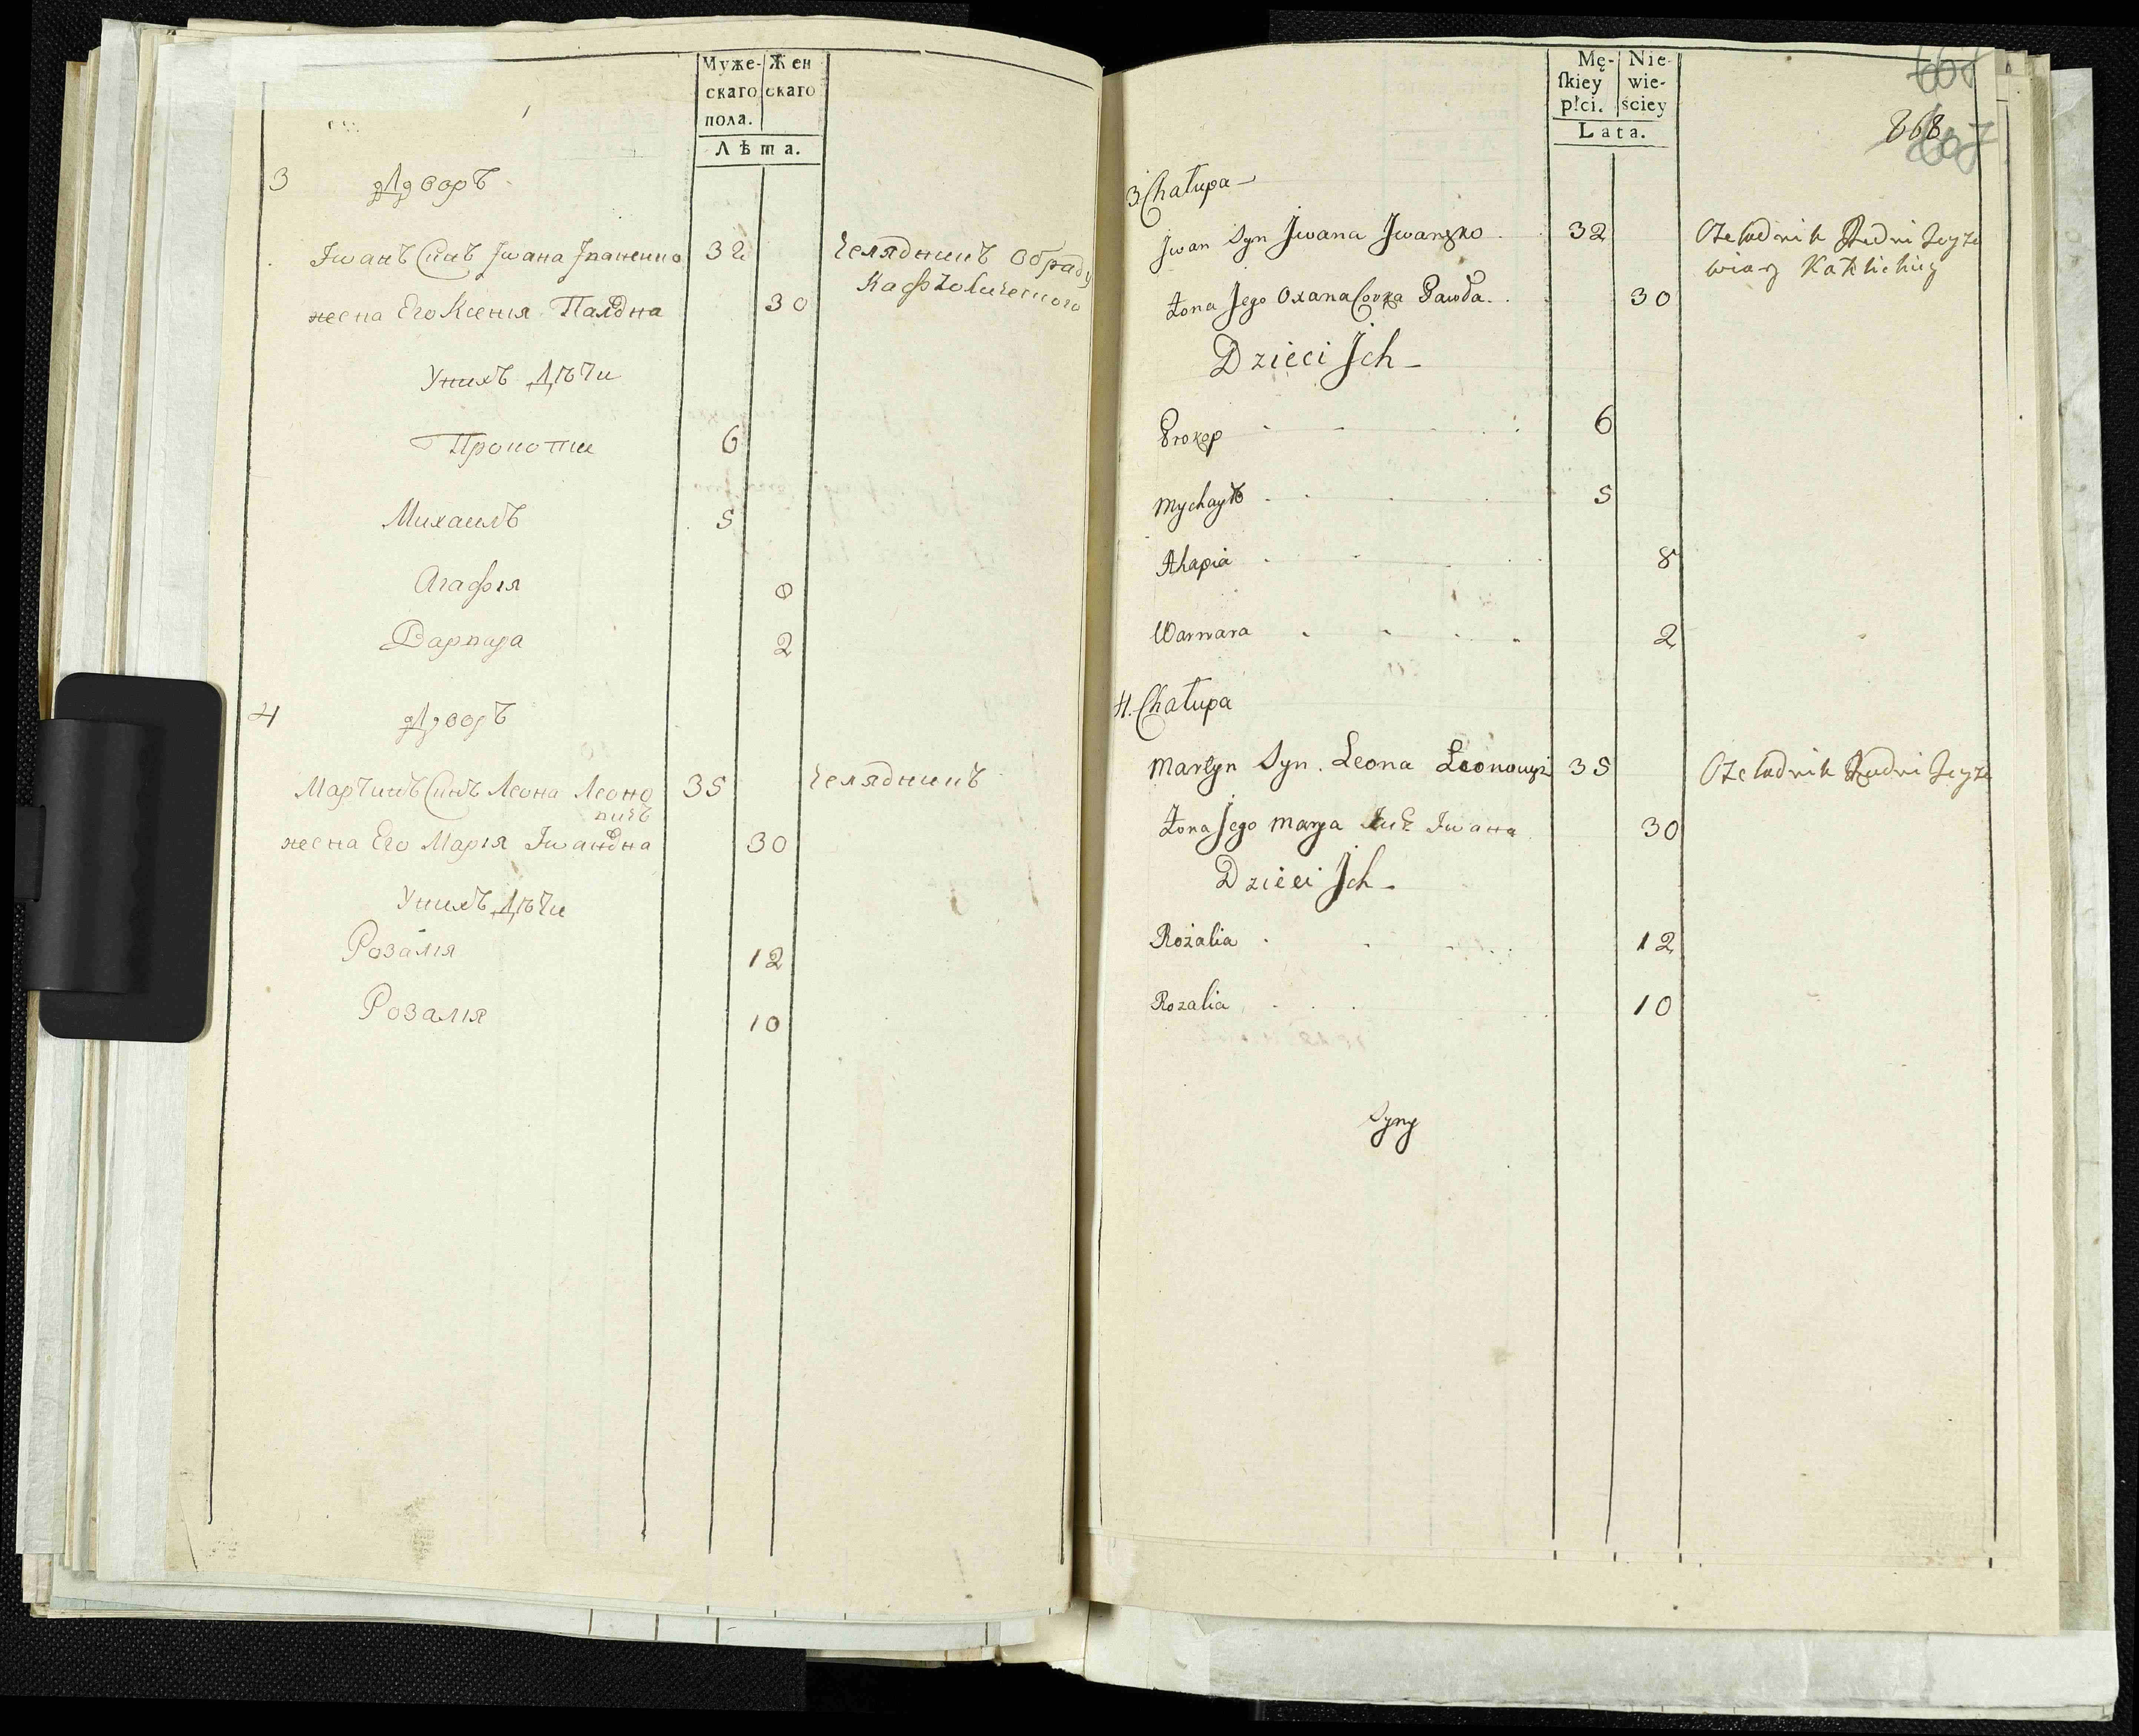 Муже-
скаго
пола.
Жен
скаго
Лѣта.
3 Дворъ
Iwанъ Синъ Iwана Iваненко 32 Челядникъ Обраду
Кафтолического
жена Его Ксенія Павлдна 30
Унихъ Дѣти
Прокопи 6
Михаилъ 5
Агафія 8
Варвара 2
4 Дворъ
Мартинъ Синъ Леона Леоно 35 Челядникъ
вичъ
жена Его Марія Iwандна 30
Унихъ Дѣти
Розалія 12
Розалія 10
Mę-
skiey
płci.
Nie-
wie-
ściey
Lata.
868
3 Chałupa
Jwan Syn Jwana 32
wiary
Żona Jego Oxana Corka Pawła 30
Dzieci Jch
Prokop 6
Mychayło 5
Ahapia 8
Warwara 2
4. Chałupa
Martyn Syn Leona Leonowyz 35
Żona Jego Marya 30
Dzieci Jch
Rozalia 12
Rozalia 10
Syny